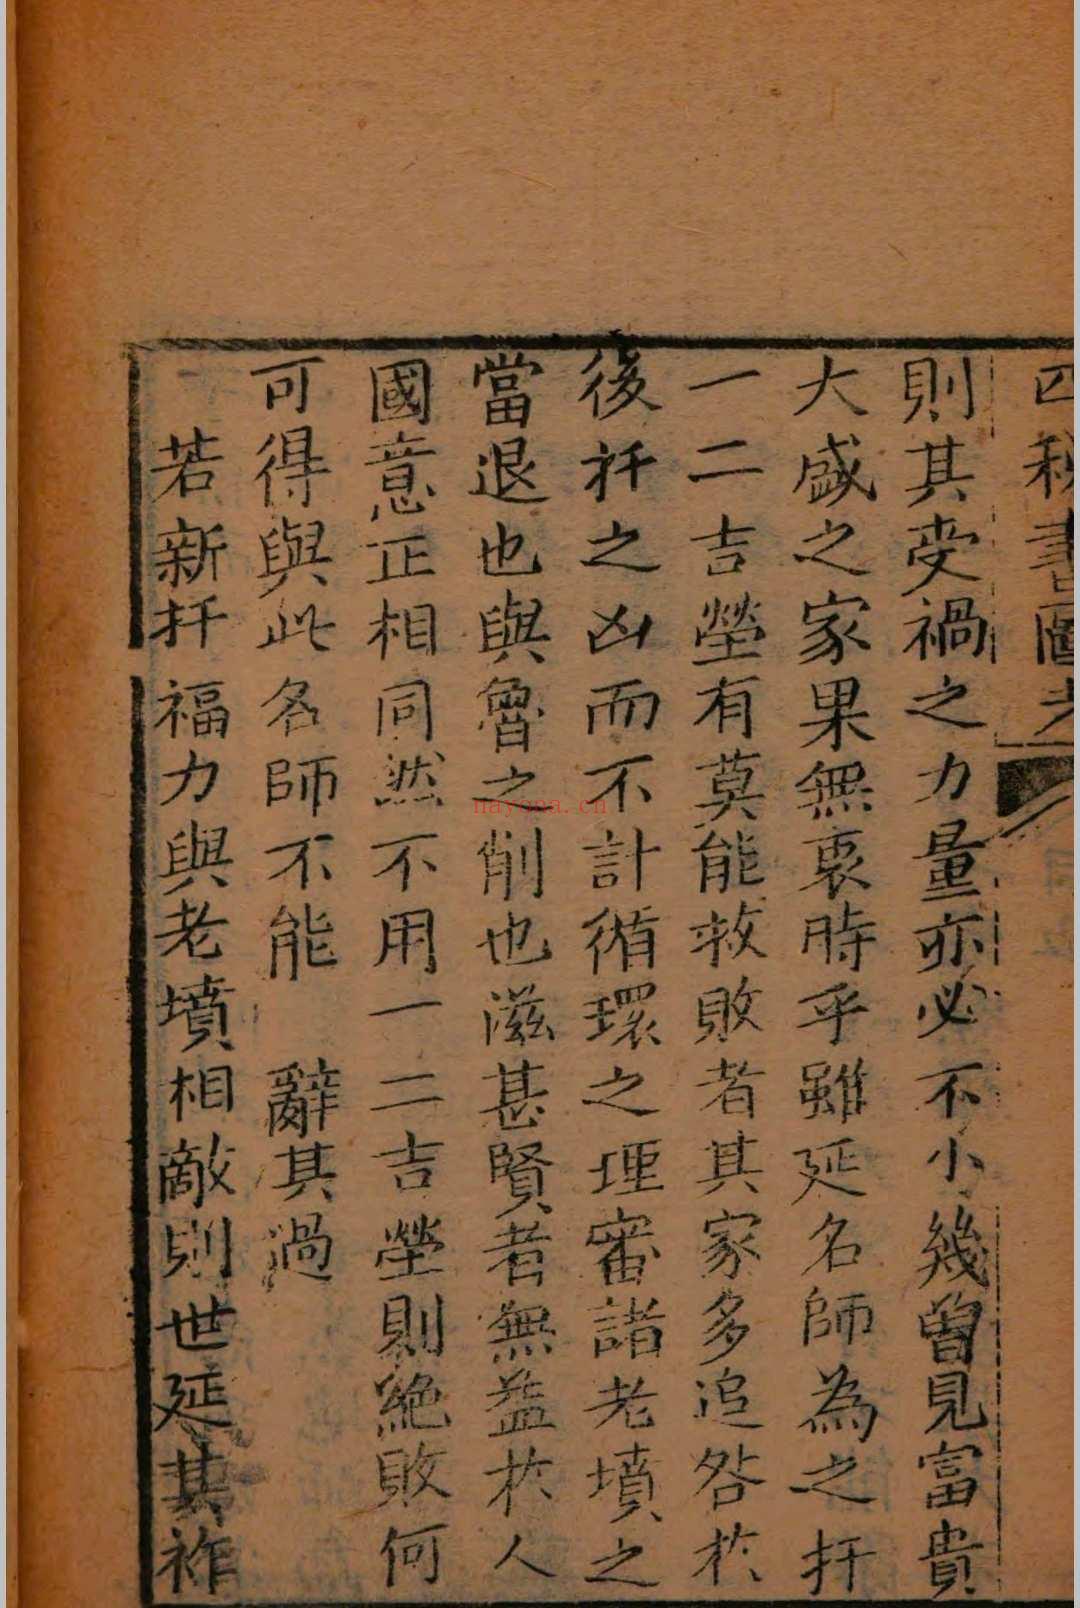 秘書圖
則其受禍之力量亦必不小幾曽見富貴
大盛之家果無衷時乎雖延名師為之扦
一二吉塋有莫能救敗者其家多追咎於
後扦之凶而不計循環之理審諸老墳之
當退也與魯之削也滋甚賢者無益於人
國意正相同然不用一二吉塋則絶敗何
可得與此名師不能 辭其過
若新扦福力與老墳相敵則世延其祚
nayona.cn